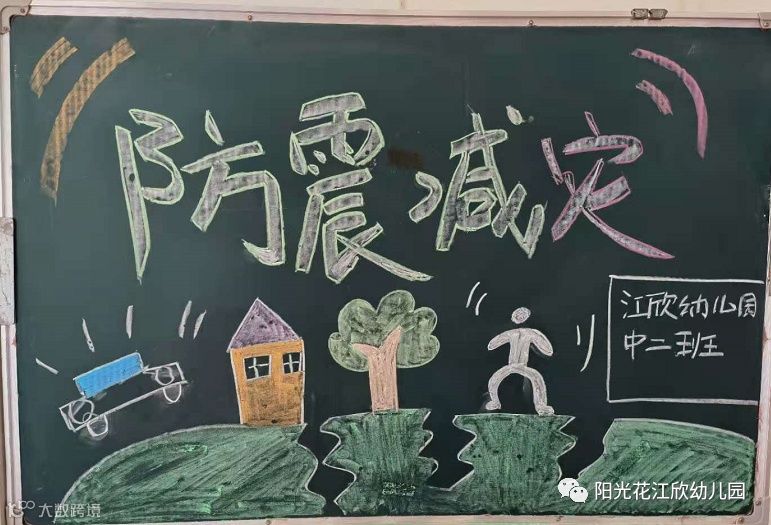 防震减灾
江欣幼儿园
中二班
阳光花江欣幼儿园
大数跨境